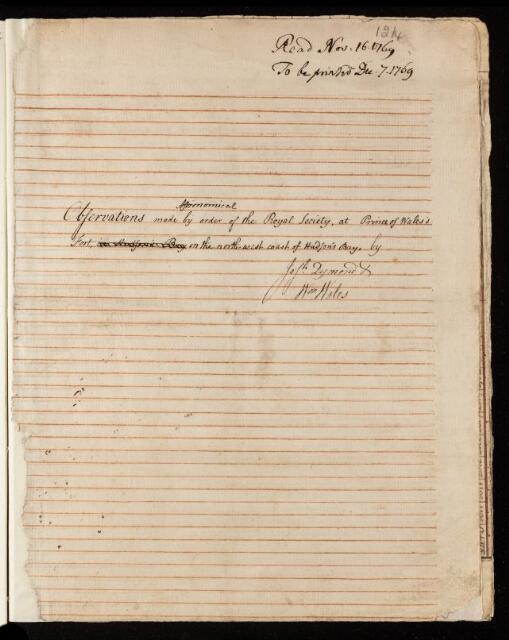 124
Read Nov. 16 1769
To be printed Dec. 7. 1769
Astronomical
Observations made by order of the Royal Society, at Prince of Wales's
Fort, in Hudson's Bay on the north-west coast of Hudson's Bay. by
Josh. Dymond &
Wm Wales